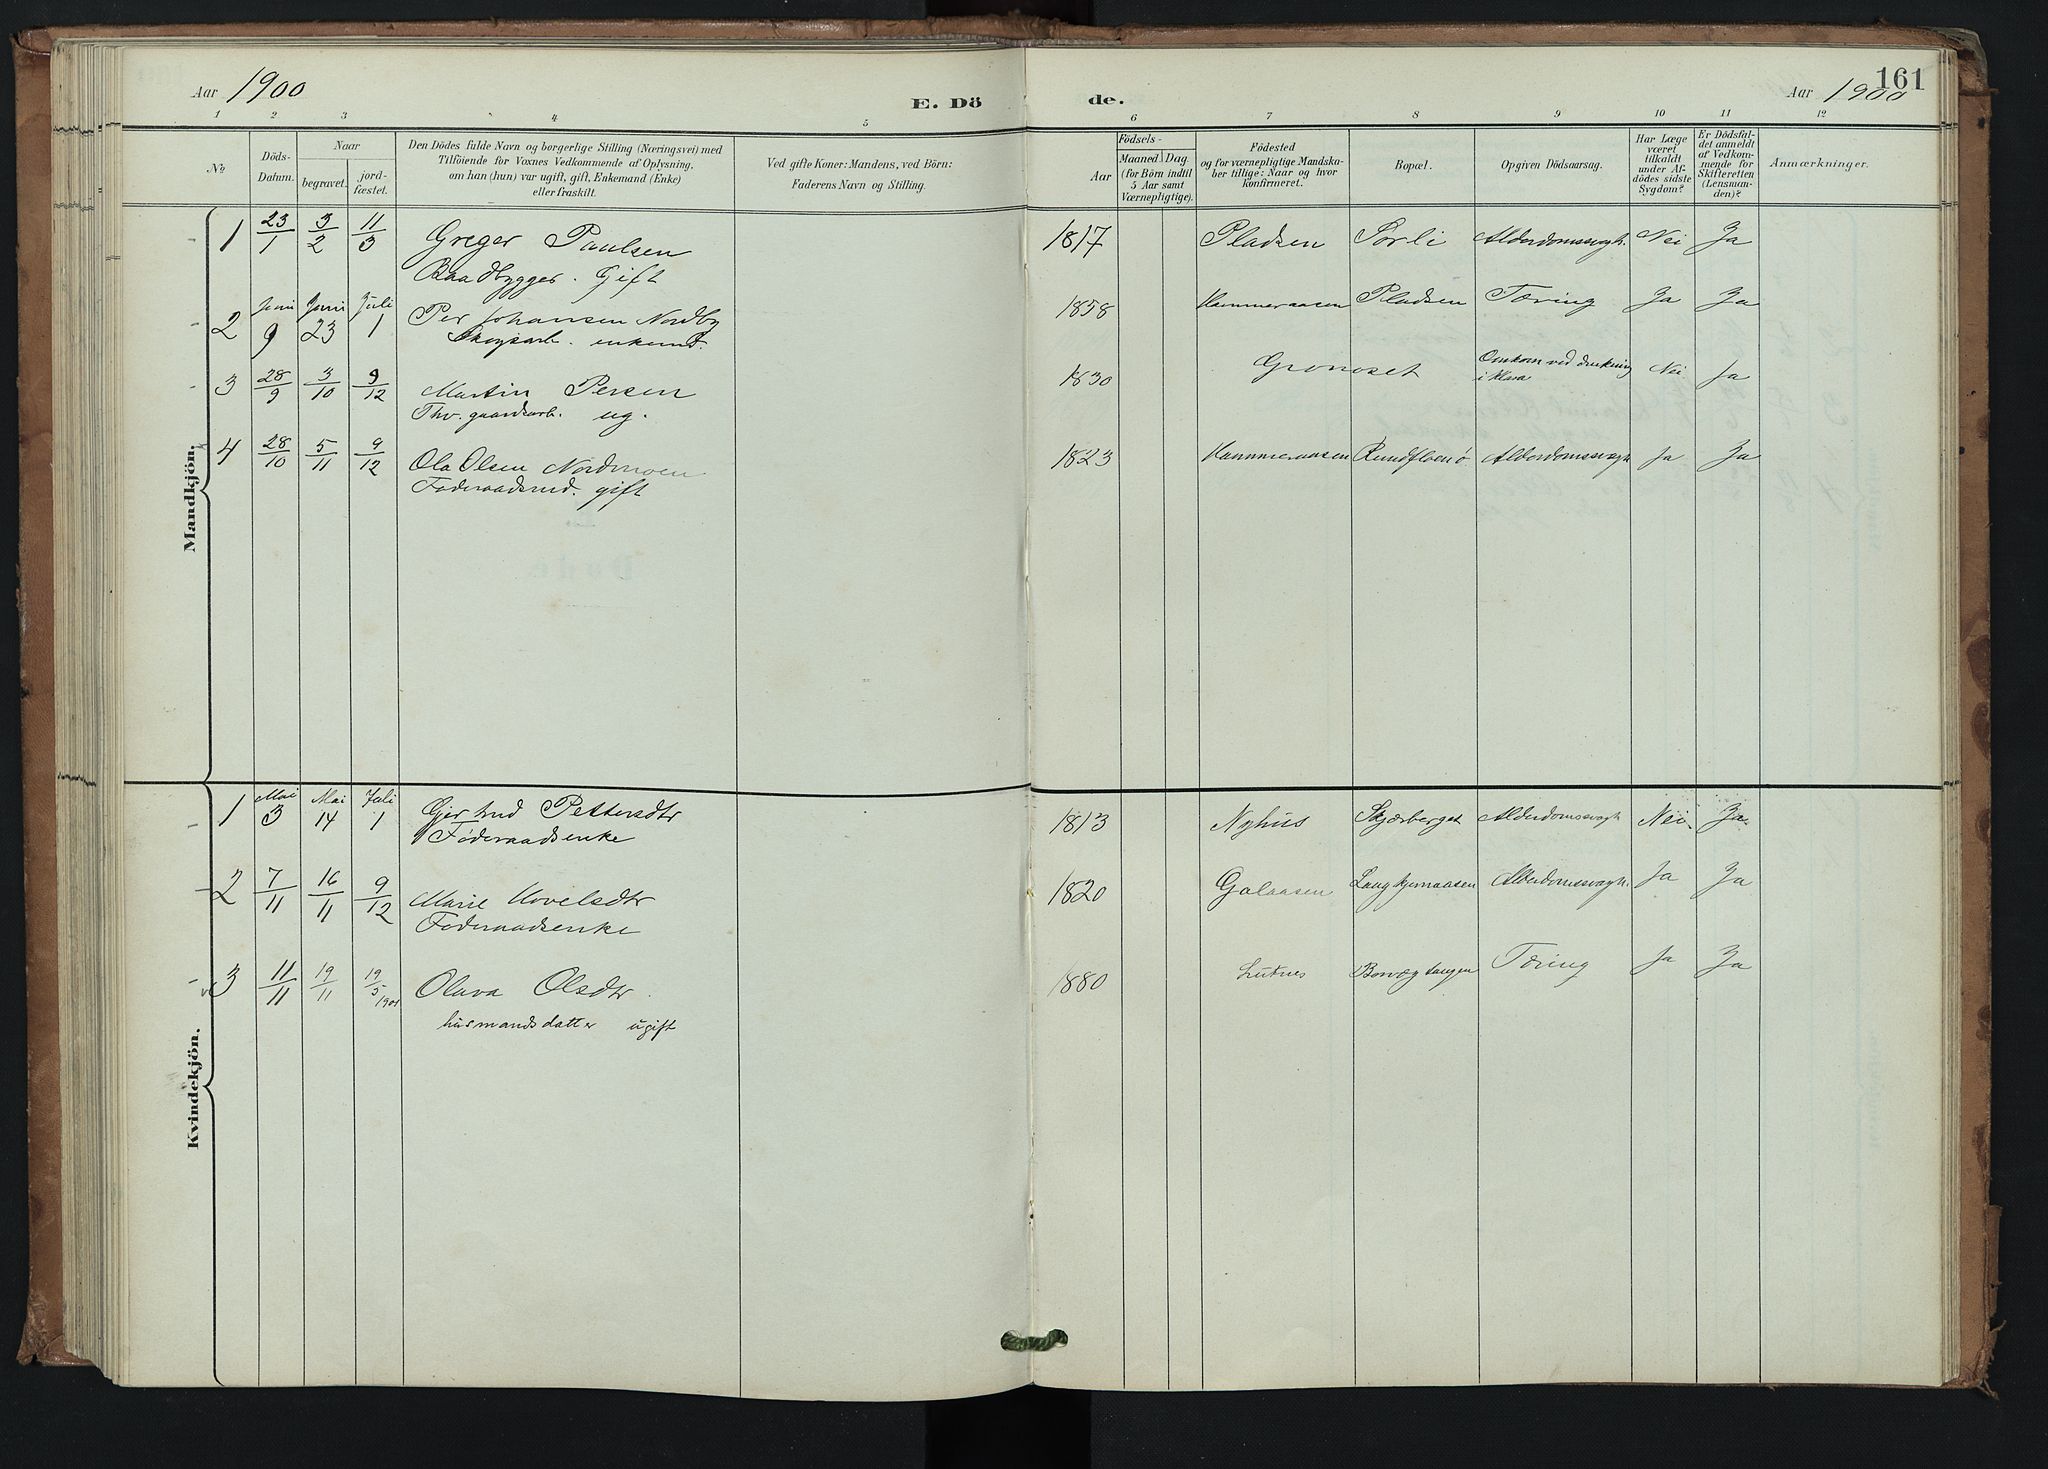 Aar 1900
E. Dö
de.
Aar 1900
161
1 2 3 4 5 6 7 8 9 10 11 12
No
Döds-
Datum.
Naar
begravet.
jord-
fæstet.
Den Dödes fulde Navn og borgerlige Stilling (Næringsvei) med
Tilföiende for Voxnes Vedkommende af Oplysning,
om han (hun) var ugift, gift, Enkemand (Enke)
eller fraskilt.
Ved gifte Koner: Mandens, ved Börn:
Faderens Navn og Stilling.
Födsels-
Aar
Maaned Dag
(for Börn indtil
5 Aar samt
Værnepligtige).
Födested
og for værnepligtige Mandska-
ber tillige: Naar og hvor
konfirmeret.
Bopæl.
Opgiven Dödsaarsag.
Har Læge
været
tilkaldt
under Af-
dödes sidste
Sygdom?
Er Dödsfal-
det anmeldt
af Vedkom-
mende for
Skifteretten
(Lensman-
den)?
Anmærkninger.
Mandkjön.
1 23/1 3/2 11/3 Greger Paulsen 1817 Pladsen Sorli Alderdomssvagh. Nei Ja
Baadbygger. Gift
2 Juni 9 Juni 23 Juli 1 Per Johansen Nordby 1858 Hammeraasen Pladsen Tæring Ja Ja
Skogsarb. enkemd.
3 28/9 3/10 9/12 Martin Persen 1830 Gronoset Omkom ved drukning Nei Ja
i Klara
Thv. gaardsarb. ug.
4 28/10 5/11 9/12 Ola Olsen Nordmoen 1823 Hammeraasen Rundfloenö Alderdomssvagh Ja Ja
Föderaadsmd. gift
Kvindekjön.
1 Mai 3 Mai 14 Juli 1 Gjertrud Pettersdtr 1813 Nyhus Skjærberget Alderdomssvagh Nei. Ja.
Föderaadsenke
2 7/11 16/11 9/12 Marie Hovelsdtr 1820 Galaasen Langkjernaasen Alderdomssvagh. Ja Ja
Föderaadsenke
3 11/11 19/11 19/5 1901 Olava Olsdtr 1880 Lutnes Tæring Ja Ja
husmandsdatter ugift